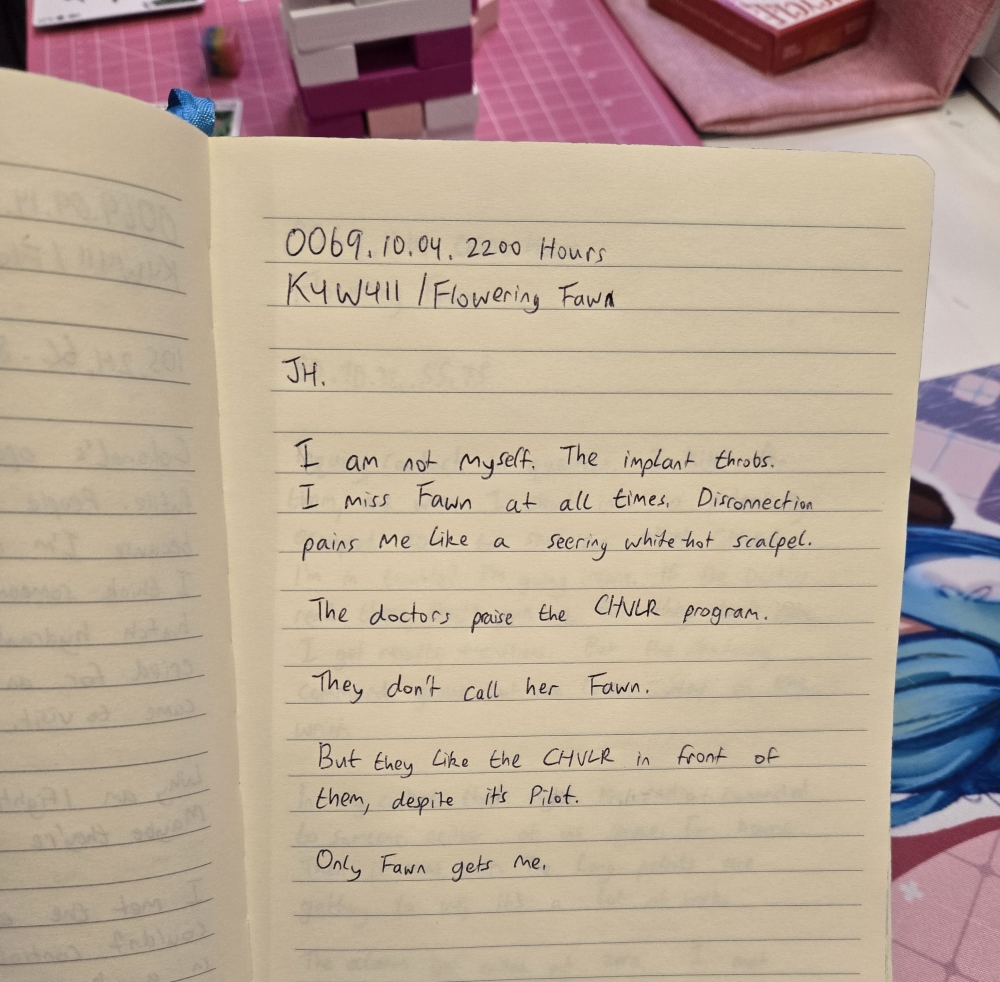 0069.10.04. 2200 Hours
K4W411 / Flowering Fawn
JH.
I am not myself. The implant throbs.
I miss Fawn at all times. Disconnection
pains me like a seering white-hot scalpel.
The doctors praise the CHVLR program.
They don't call her Fawn.
But they like the CHVLR in front of
them, despite it's Pilot.
Only Fawn gets me.